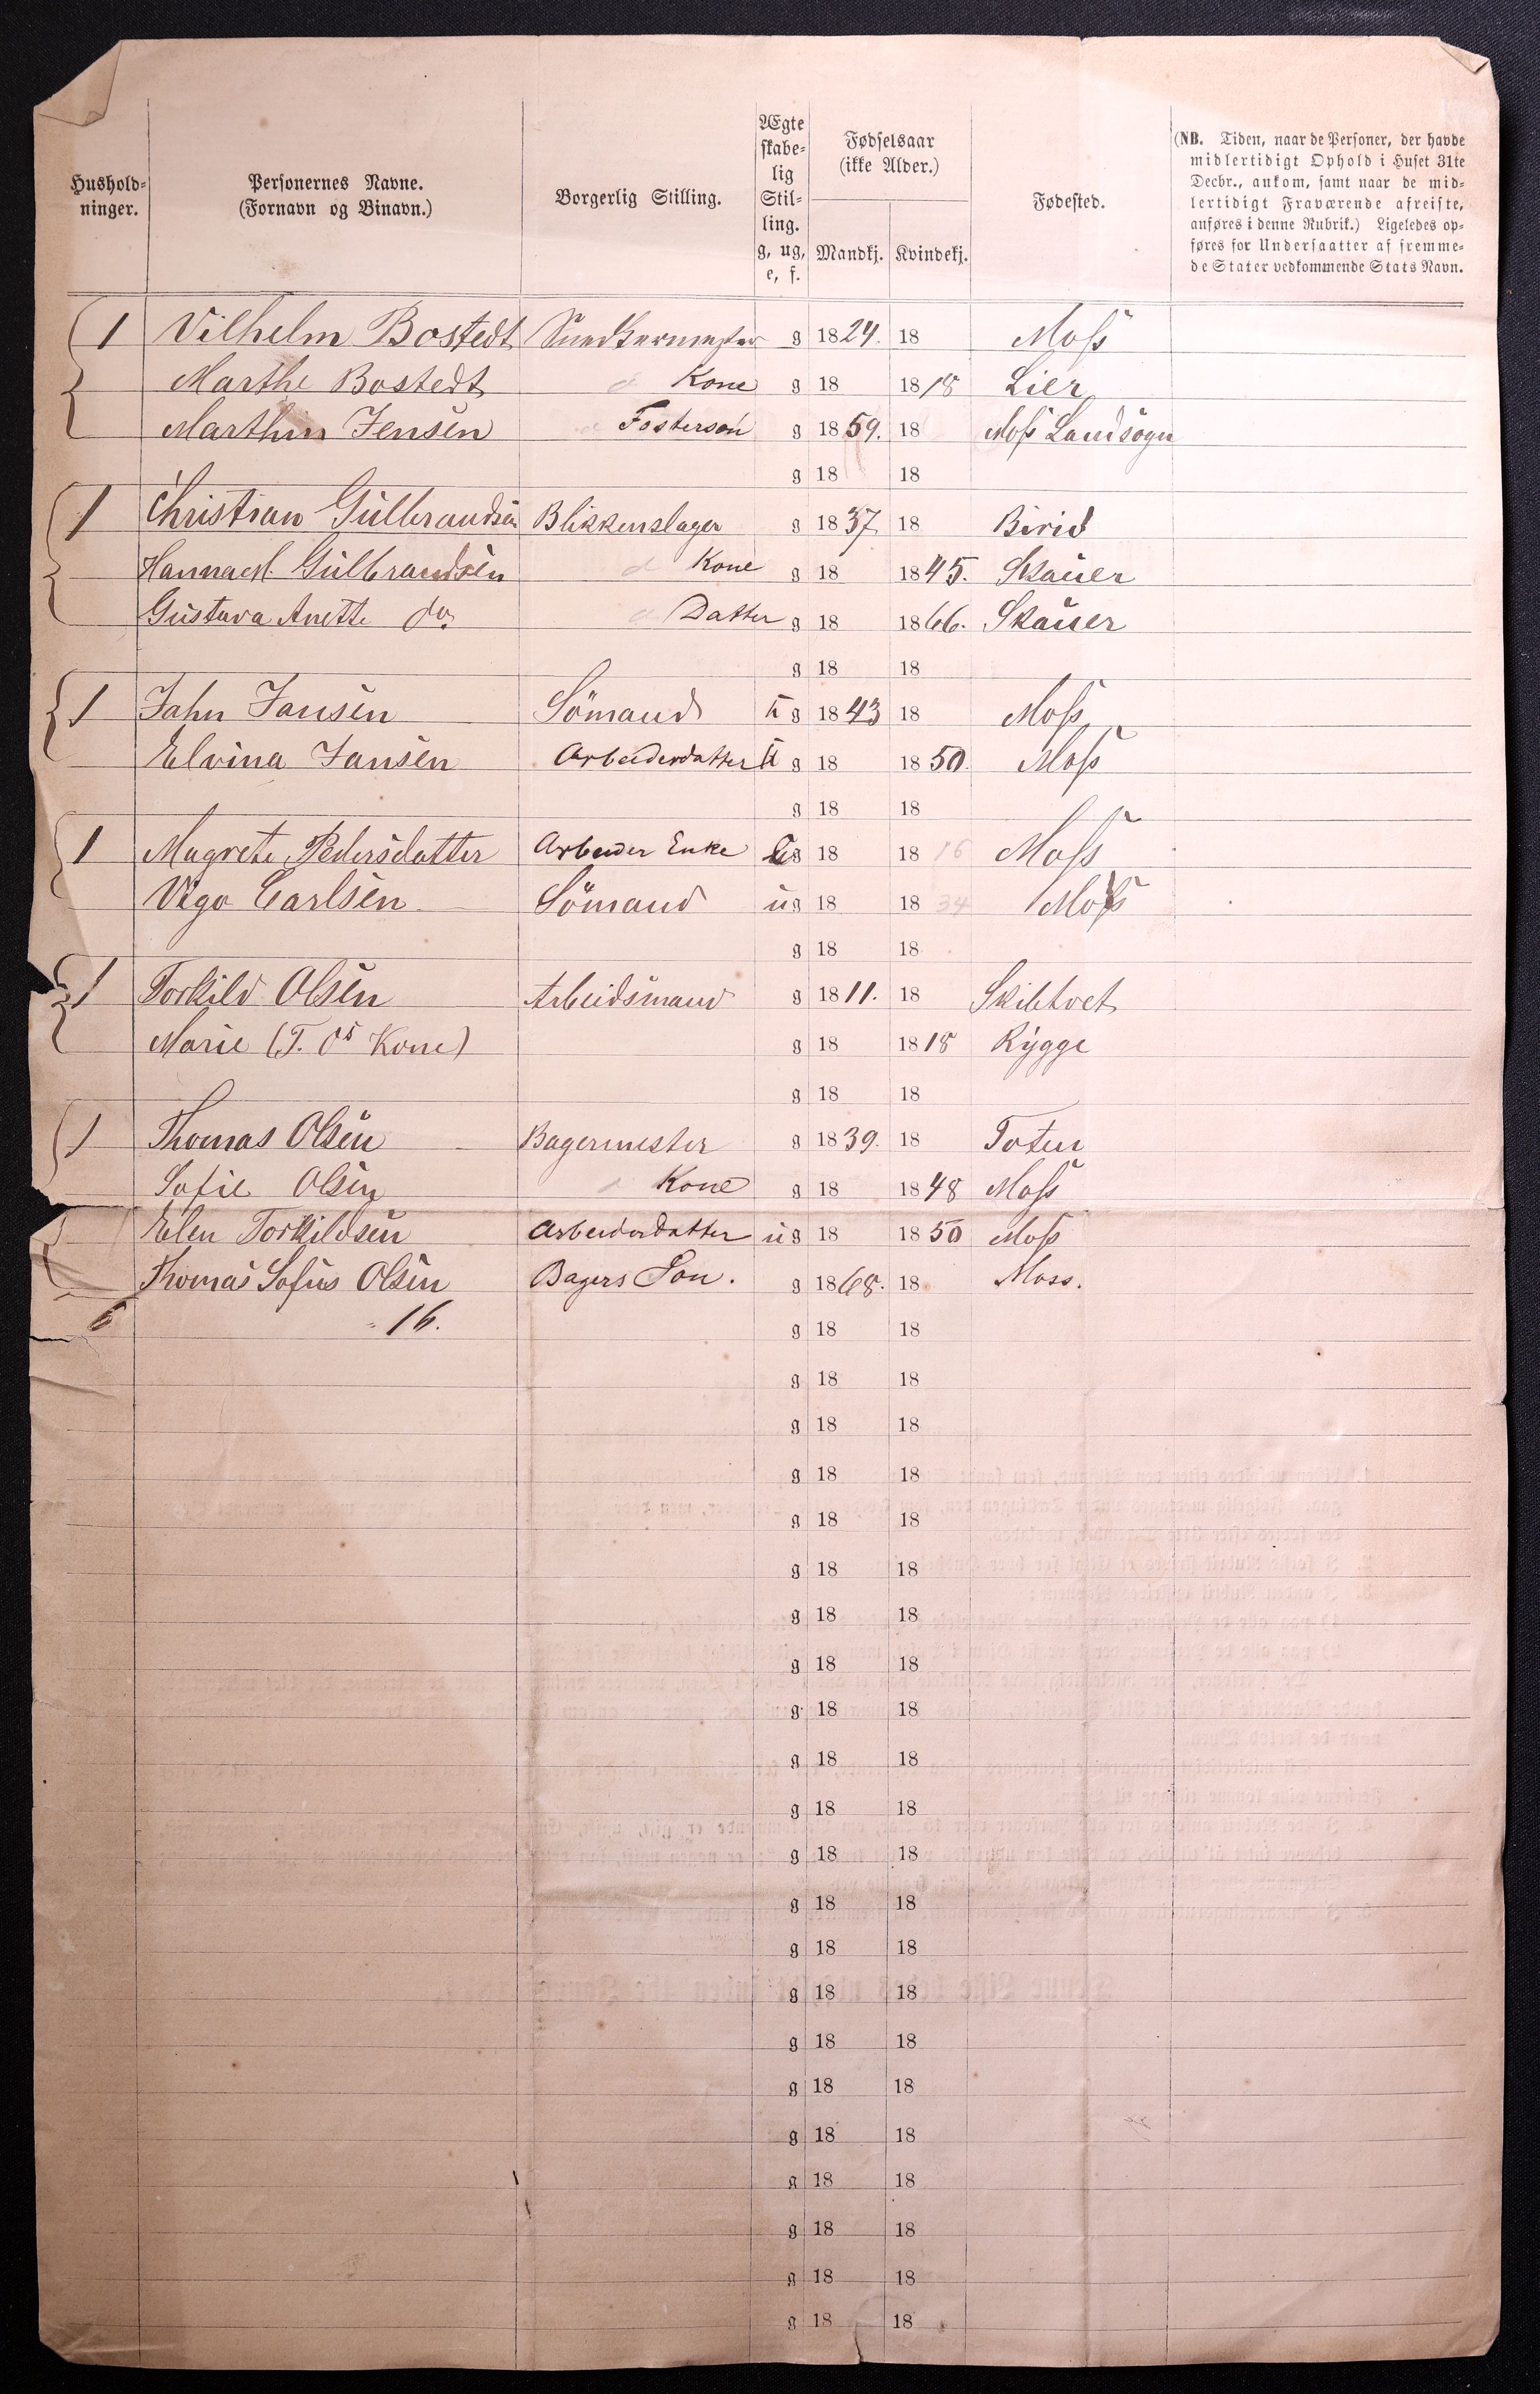 Hushold- ninger.
Personernes Navne. (Fornavn og Binavn.)
Borgerlig Stilling.
Ægte skabe- lig Stil- ling. g, ug, e, f.
Fødselsaar (ikke Alder.)
Mandkj. Kvindekj.
Fødested.
(NB. Tiden, naar de Personer, der havde
midlertidigt Ophold i Huset 31te
Decbr., ankom, samt naar de mid-
lertidigt Fraværende afreiste,
anføres i denne Rubrik.) Ligeledes op-
føres for Undersaatter af fremme-
de Stater vedkommende Stats Navn.
1 Vilhelm Bostedt Snedkermester g 1824. 18 Moss
Marthe Bostedt Kone g 18 1818 Lier
Marthin Jensen Fosterson g 1859. 18 Moss Landsogn
g 18 18
1 Christian Gulbrandsen Blikkenslager g 1837 18 Birid
Gulbrandsen Kone g 18 1845. Skauer
Gustava Anette do. Datter g 18 1866. Skauer
g 18 18
1 Jahn Jansen Sömand u g 1843 18 Moss
Elvina Jansen Arbeiderdatter u g 18 1850. Moss
g 18 18
1 Magrete Pedersdatter Arbeider Enke e g 18 18 16 Moss
Vigo Carlsen Sömand u g 18 18 34 Moss
g 18 18
1 Torkild Olsen Arbeidsmand g 1811. 18 Skibtvet
Marie (T. Os Kone) g 18 1818 Rygge
g 18 18
1 Thomas Olsen Bagermester g 1839. 18 Toten
Sofie Olsen Kone g 18 1848 Moss
Elen Torkildsen Arbeiderdatter u g 18 1850 Moss
Thomas Sofus Olsen Bagers Son. g 1868. 18 Moss.
6 16. g 18 18
g 18 18
g 18 18
g 18 18
g 18 18
g 18 18
g 18 18
g 18 18
g 18 18
g 18 18
g 18 18
g 18 18
g 18 18
g 18 18
g 18 18
g 18 18
g 18 18
g 18 18
g 18 18
g 18 18
g 18 18
g 18 18